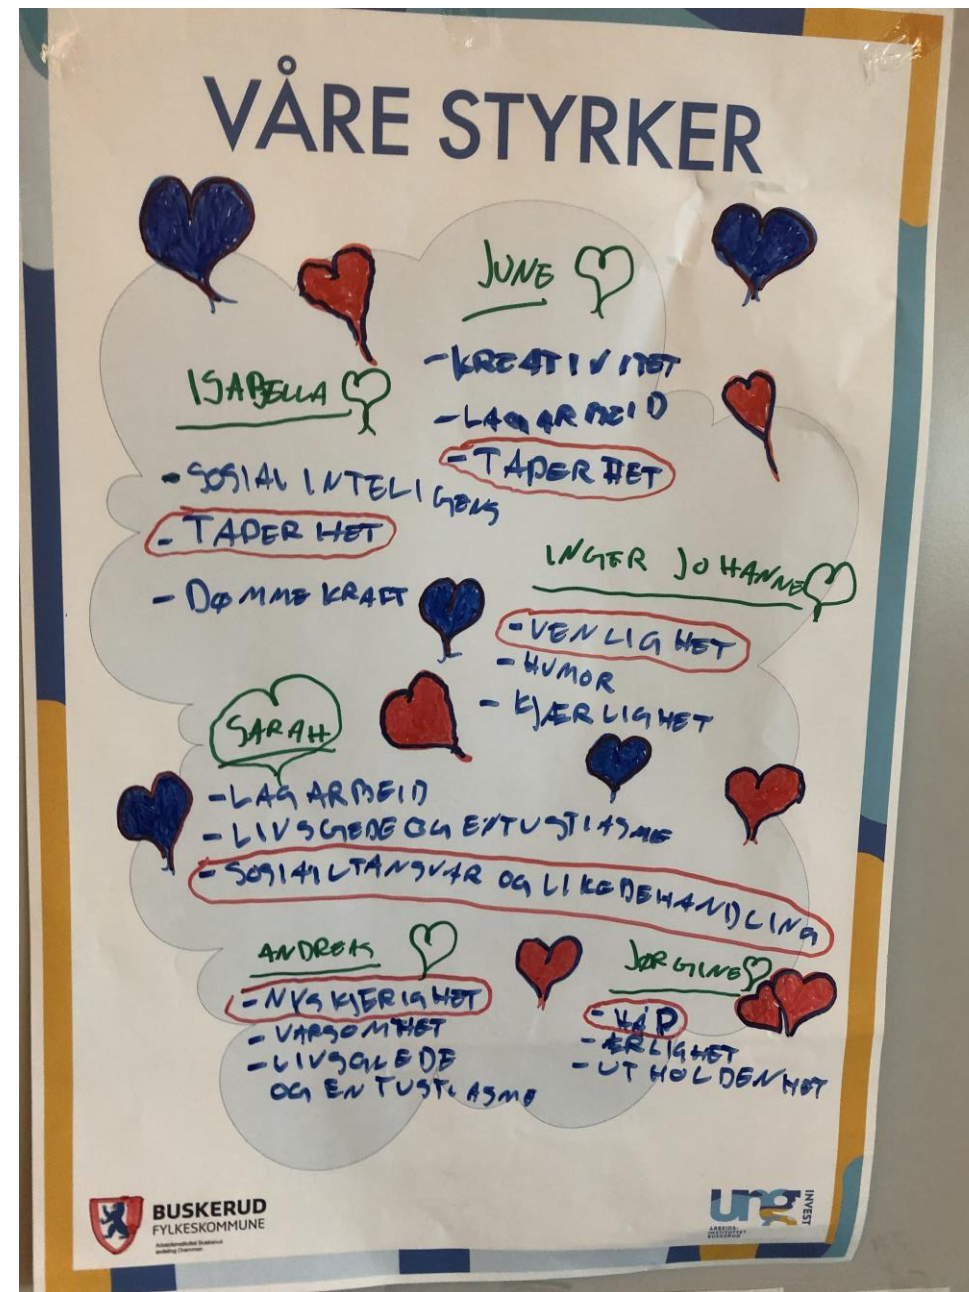 VÅRE STYRKER
JUNE
- KREATIVITET
- LAGARBEID
- TAPERHET
ISABELLA
- SOSIAL INTELIGENS
- TAPERHET
- DØMMEKRAFT
INGER JOHANNE
- VENLIGHET
- HUMOR
- KJÆRLIGHET
SARAH
- LAGARBEID
- LIVSGEDE OG ENTUSTIASME
- SOSIALTANSVAR OG LIKEBEHANDLING
ANDREAS
- NYSKJERIGHET
- VARSOMHET
- LIVSGLEDE
OG ENTUSTIASME
JØRGINE
- HÅP
- ÆRLIGHET
- UTHOLDENHET
BUSKERUD
FYLKESKOMMUNE
Arbeidsinstituttet Buskerud
avdeling Drammen
ung
INVEST
ARBEIDS-
INSTITUTTET
BUSKERUD